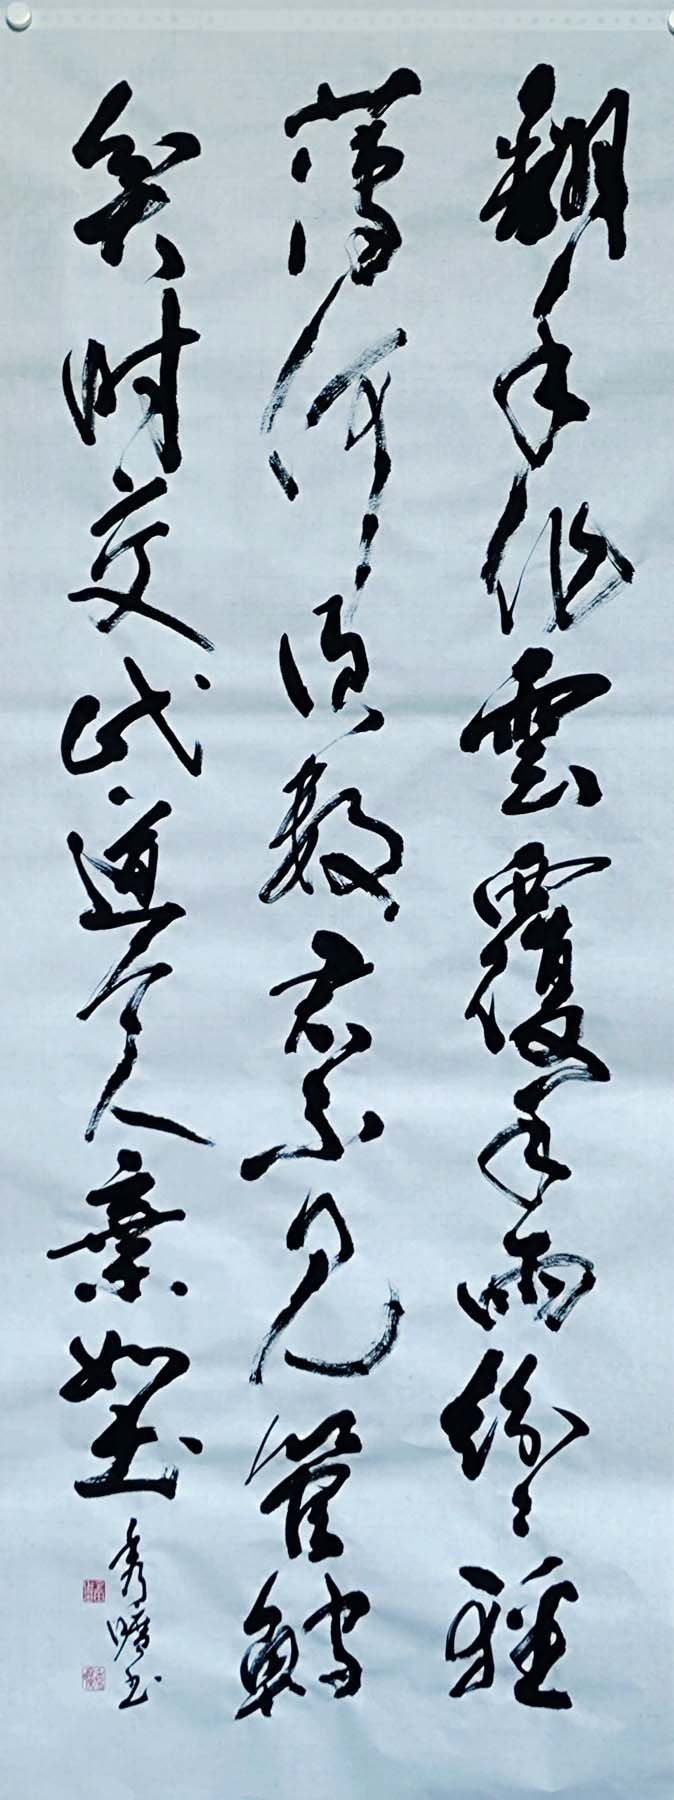 翻手作雲覆手雨紛々軽
薄何須數君不見管鮑
貧時交此道今人棄如土
秀晴书